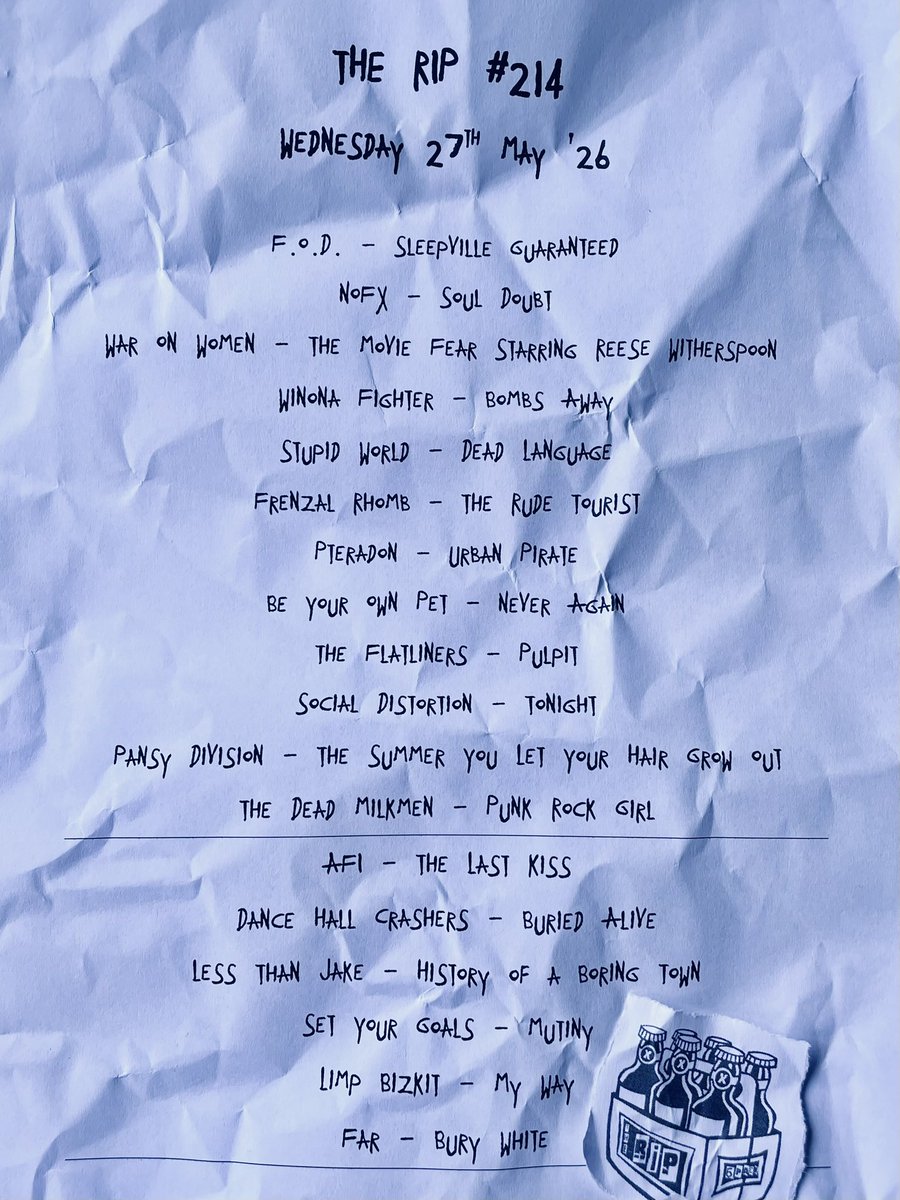 THE RIP #214
WEDNESDAY 27TH MAY '26
F.O.D. – SLEEPVILLE GUARANTEED
NOFX – SOUL DOUBT
WAR ON WOMEN – THE MOVIE FEAR STARRING REESE WITHERSPOON
WINONA FIGHTER – BOMBS AWAY
STUPID WORLD – DEAD LANGUAGE
FRENZAL RHOMB – THE RUDE TOURIST
PTERADON – URBAN PIRATE
BE YOUR OWN PET – NEVER AGAIN
THE FLATLINERS – PULPIT
SOCIAL DISTORTION – TONIGHT
PANSY DIVISION – THE SUMMER YOU LET YOUR HAIR GROW OUT
THE DEAD MILKMEN – PUNK ROCK GIRL
AFI – THE LAST KISS
DANCE HALL CRASHERS – BURIED ALIVE
LESS THAN JAKE – HISTORY OF A BORING TOWN
SET YOUR GOALS – MUTINY
LIMP BIZKIT – MY WAY
FAR – BURY WHITE
THE RIP
6 PACK